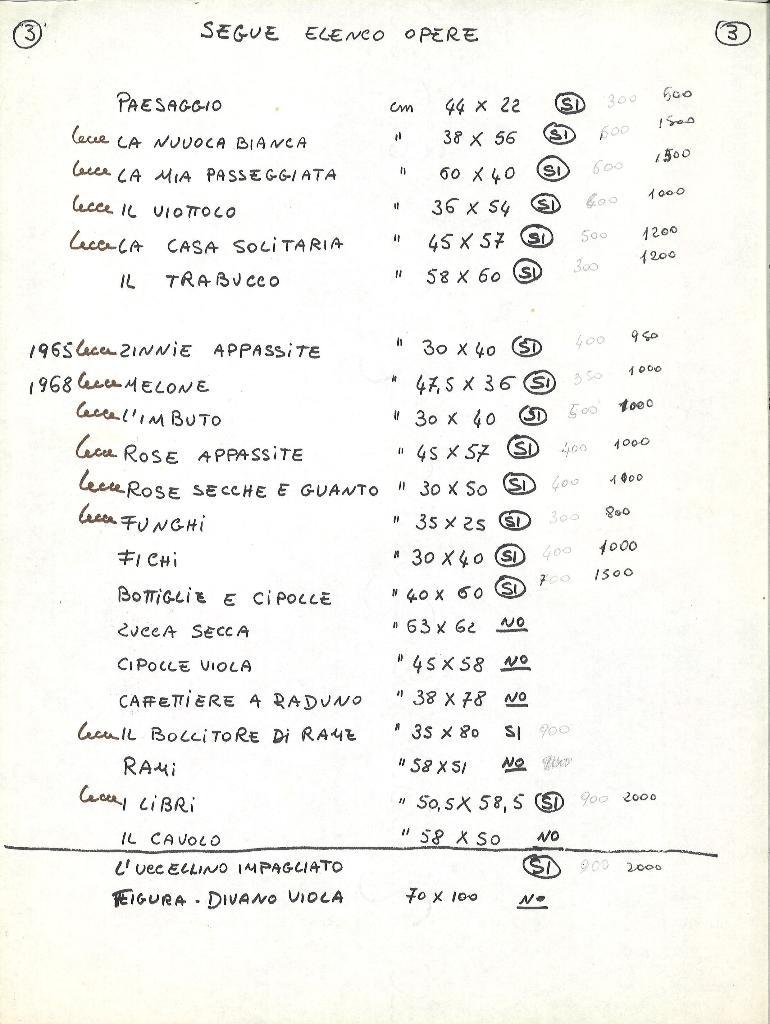 3 SEGUE ELENCO OPERE 3
PAESAGGIO cm 44 X 22 SI 300 500
Lecce LA NUVOLA BIANCA " 38 X 56 SI 600 1500
Lecce LA MIA PASSEGGIATA " 60 X 40 SI 600 1500
Lecce IL VIOTTOLO " 36 X 54 SI 600 1000
Lecce LA CASA SOLITARIA " 45 X 57 SI 500 1200
IL TRABUCCO " 58 X 60 SI 300 1200
1965 Lecce ZINNIE APPASSITE " 30 X 40 SI 400 950
1968 Lecce MELONE " 47,5 X 36 SI 350 1000
Lecce L'IMBUTO " 30 X 40 SI 500 1000
Lecce ROSE APPASSITE " 45 X 57 SI 400 1000
Lecce ROSE SECCHE E GUANTO " 30 X 50 SI 400 1000
Lecce FUNGHI " 35 X 25 SI 300 800
FICHI " 30 X 40 SI 400 1000
BOTTIGLIE E CIPOLLE " 40 X 60 SI 700 1500
ZUCCA SECCA " 63 X 62 NO
CIPOLLE VIOLA " 45 X 58 NO
CAFFETTIERE A RADUNO " 38 X 78 NO
Lecce IL BOLLITORE DI RAME " 35 X 80 SI 900
RAMI " 58 X 51 NO
Lecce I LIBRI " 50,5 X 58,5 SI 900 2000
IL CAVOLO " 58 X 50 NO
L'UCCELLINO IMPAGLIATO SI 900 2000
FIGURA - DIVANO VIOLA 70 X 100 NO